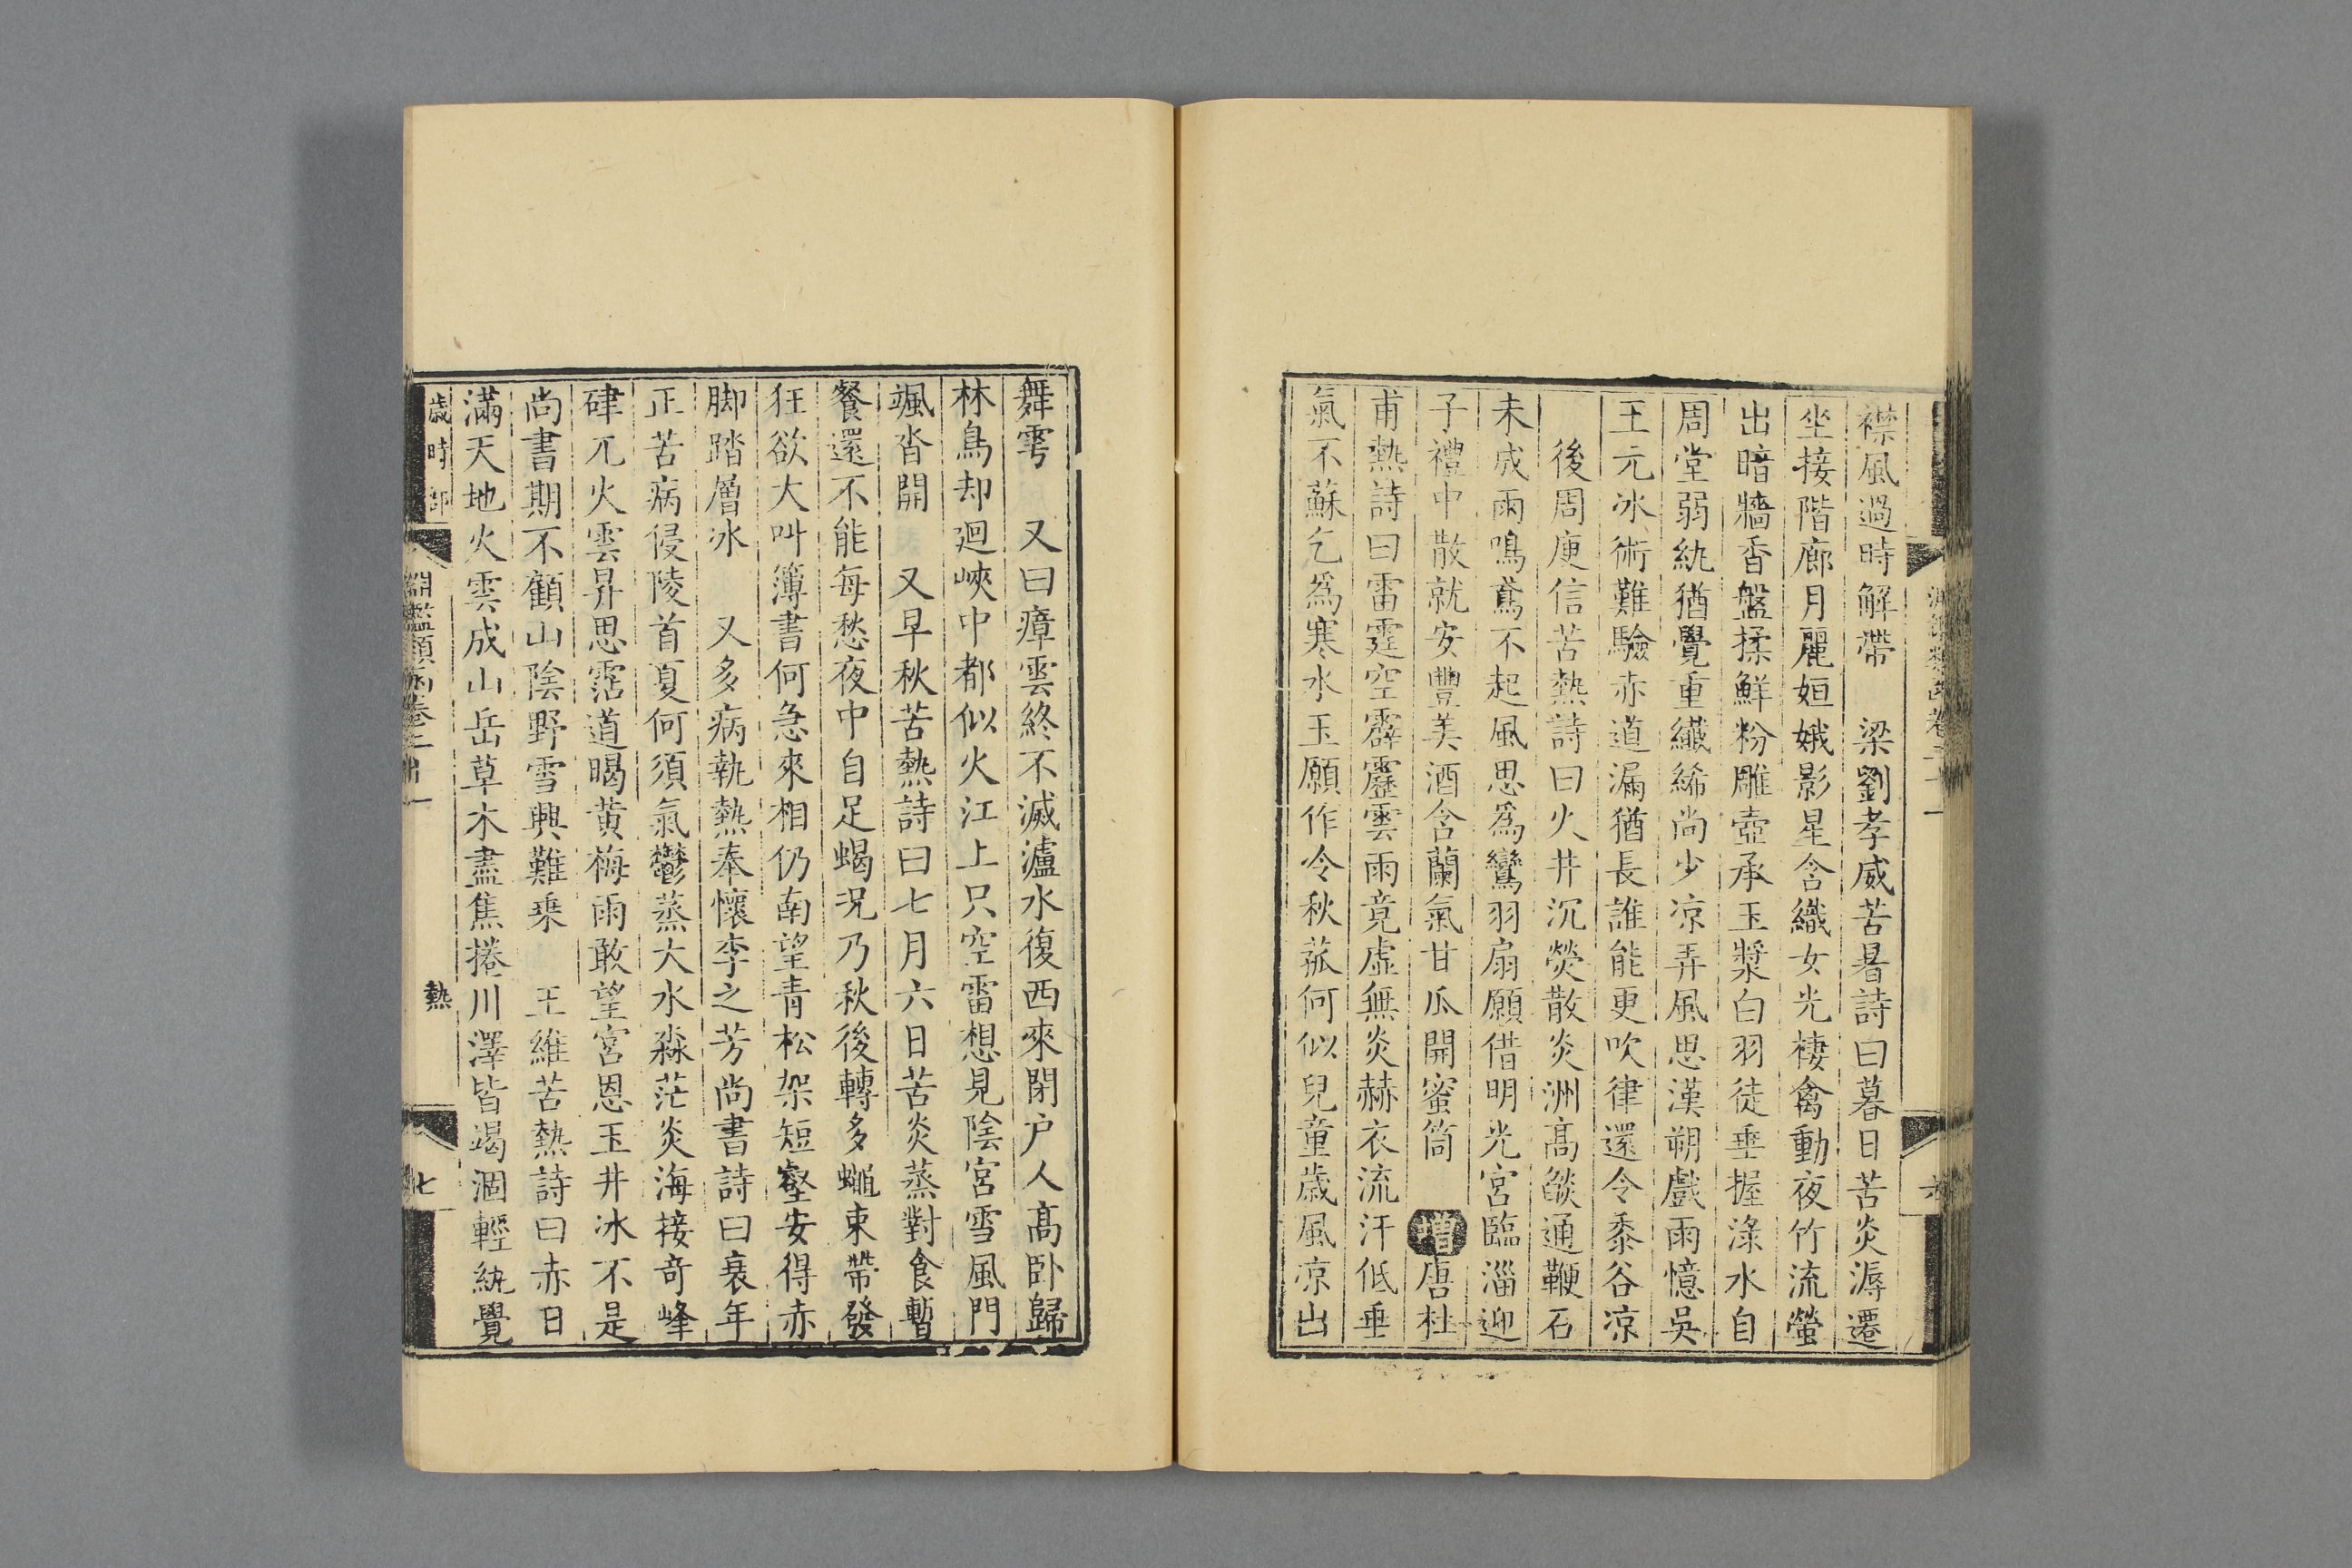 襟風過時解帶　梁劉孝威苦暑詩曰暮日苦炎溽遷
坐接階廊月麗姮娥影星含織女光棲禽動夜竹流螢
出暗牆香盤揉鮮粉雕壺承玉漿白羽徒垂握淥水自
周堂弱紈猶覺重纖絺尚少凉弄風思漢朔戲雨憶吳
王元冰術難驗赤道漏猶長誰能更吹律還令黍谷凉
後周庾信苦熱詩曰火井沉熒散炎洲髙燄通鞭石
未成雨鳴鳶不起風思爲鸞羽扇願借明光宮臨淄迎
子禮中散就安豐美酒含蘭氣甘瓜開蜜筒　增唐杜
甫熱詩曰雷霆空霹靂雲雨竟虛無炎赫衣流汗低垂
氣不蘇乞爲寒水玉願作令秋菰何似兒童歲風凉出
舞雩　又曰瘴雲終不滅瀘水復西來閉户人髙卧歸
林鳥却迴峽中都似火江上只空雷想見陰宮雪風門
颯沓開　又早秋苦熱詩曰七月六日苦炎蒸對食暫
餐還不能每愁夜中自足蝎况乃秋後轉多蠅束帶發
狂欲大叫簿書何急來相仍南望青松架短壑安得赤
脚踏層冰　又多病執熱奉懷李之芳尚書詩曰衰年
正苦病侵陵首夏何須氣鬱蒸大水淼茫炎海接奇峰
硉兀火雲昇思霑道暍黃梅雨敢望宮恩玉井冰不是
尚書期不顧山陰野雪興難乘　王維苦熱詩曰赤日
滿天地火雲成山岳草木盡焦捲川澤皆竭涸輕紈覺
歲時部
淵鑑類函卷二十一
熱
七